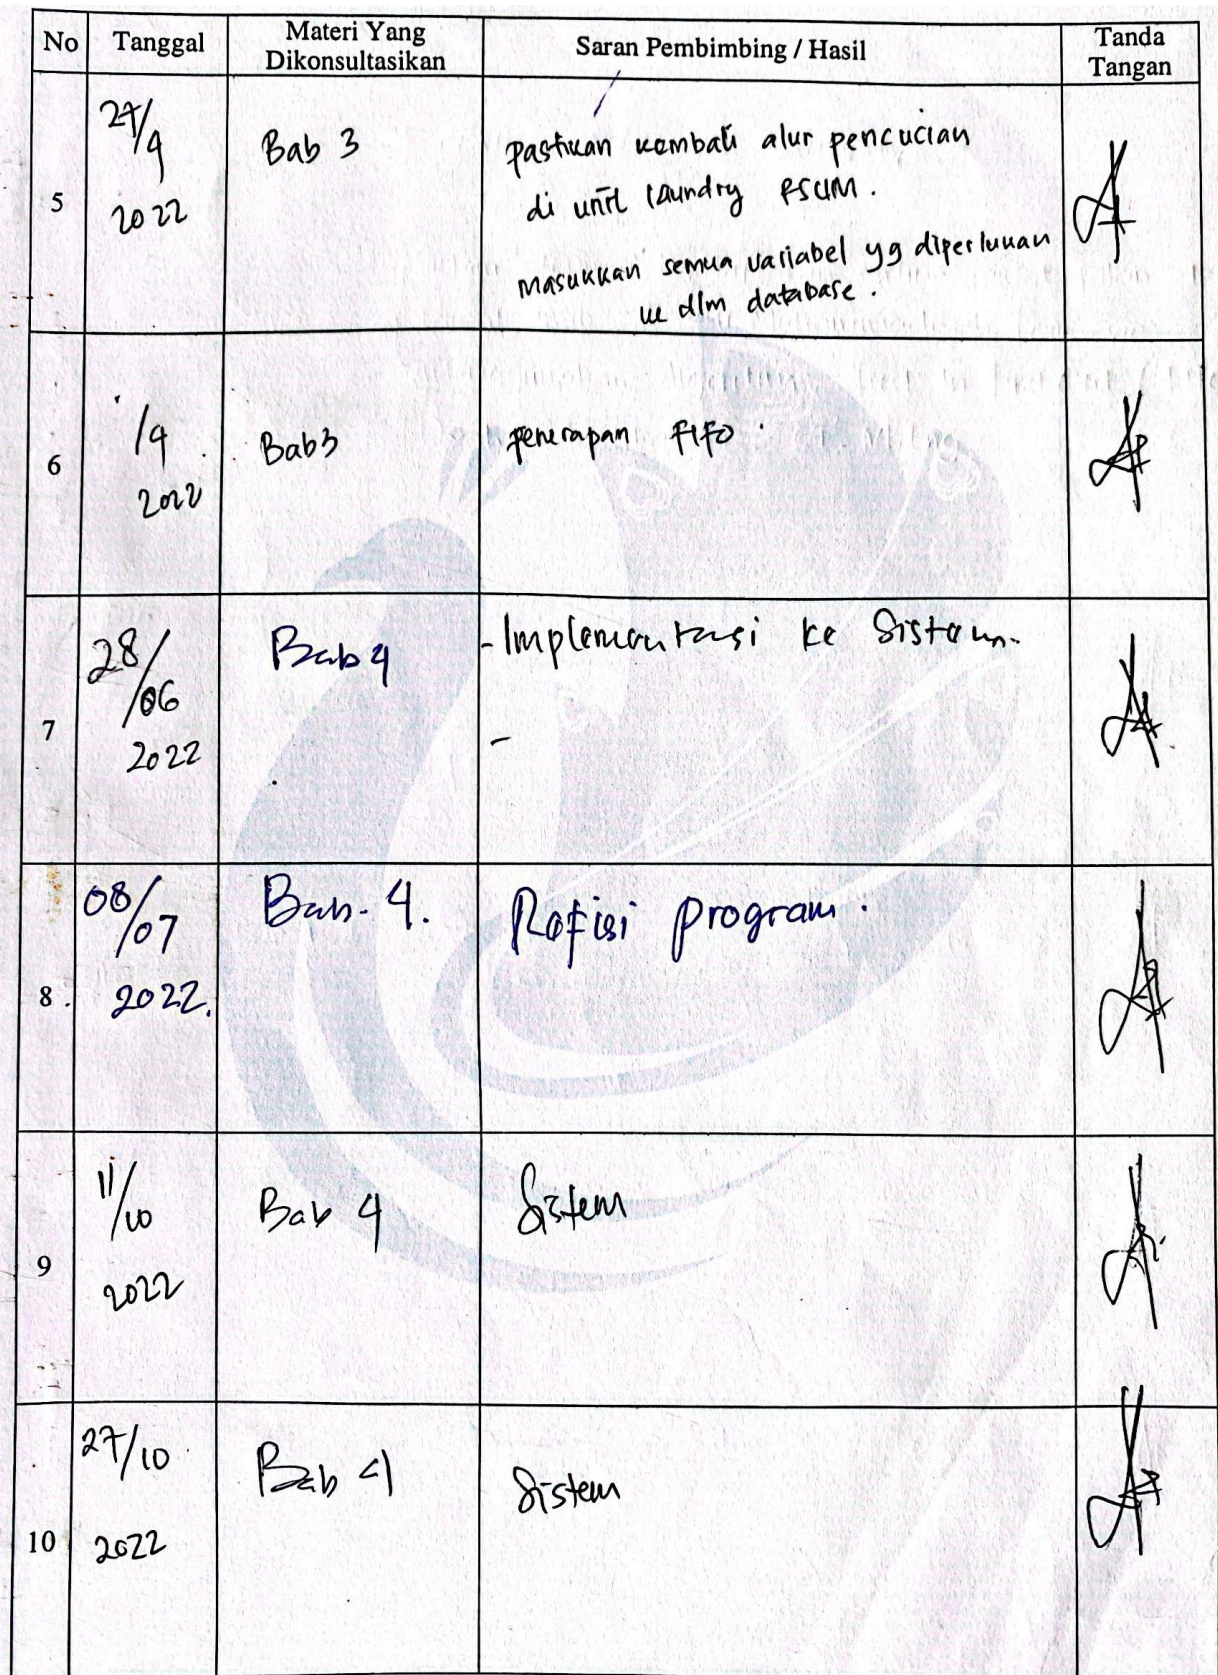 No Tanggal Materi Yang Dikonsultasikan Saran Pembimbing / Hasil Tanda Tangan
5
27/4
2022
Bab 3
pastikan kembali alur pencucian
di unit laundry RSUM.
masukkan semua variabel yg diperlukan
ke dlm database.
6
/4
2022
Bab3
penerapan FIFO.
7
28/06
2022
Bab 4
- Implementasi ke Sistem.
-
8.
08/07
2022.
Bab. 4.
Rofisi program.
9
11/10
2022
Bab 4
Sistem
10
27/10
2022
Bab 4
Sistem